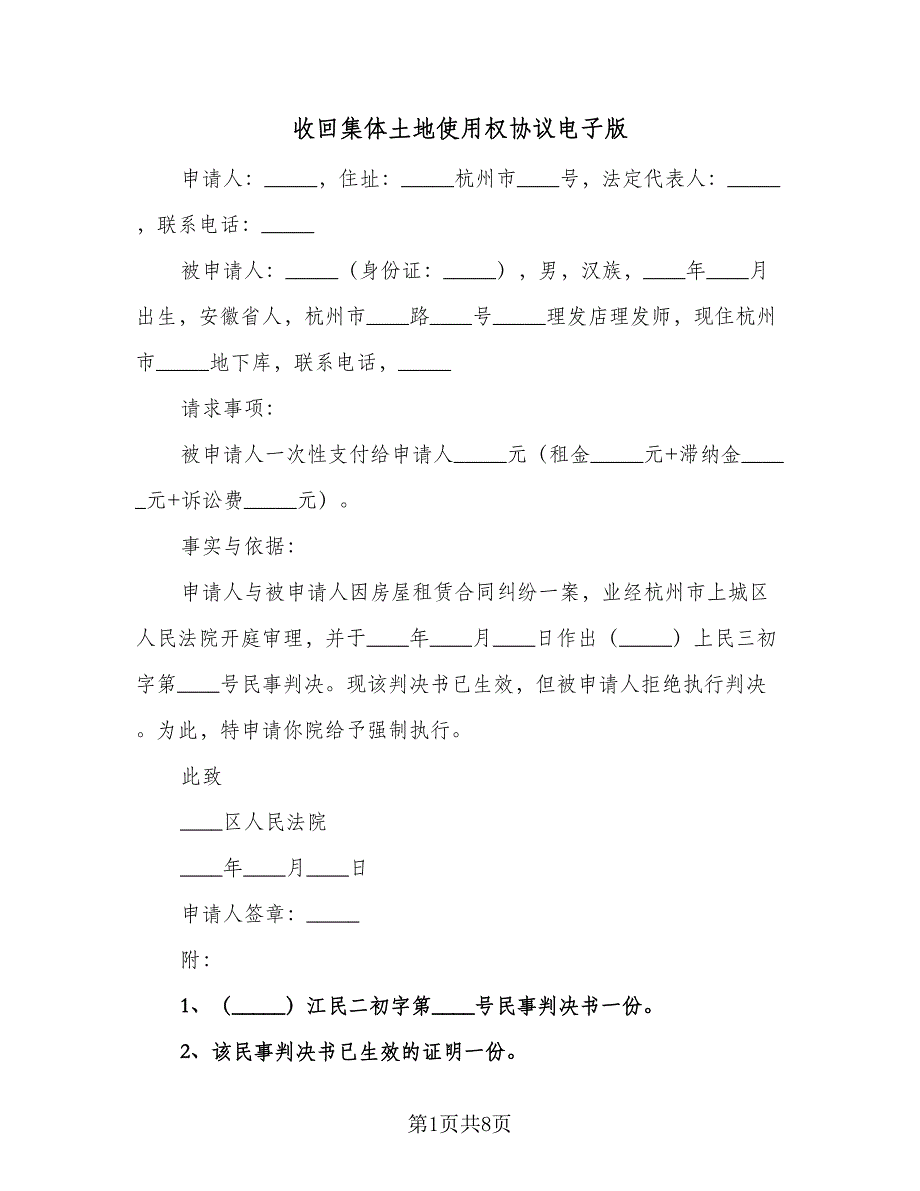 收回集体土地使用权协议电子版
申请人：_____，住址：_____杭州市____号，法定代表人：_____
，联系电话：_____
被申请人：_____（身份证：_____），男，汉族，____年____月
出生，安徽省人，杭州市____路____号_____理发店理发师，现住杭州
市_____地下库，联系电话，_____
请求事项：
被申请人一次性支付给申请人_____元（租金_____元+滞纳金____
_元+诉讼费_____元）。
事实与依据：
申请人与被申请人因房屋租赁合同纠纷一案，业经杭州市上城区
人民法院开庭审理，并于____年____月____日作出（_____）上民三初
字第____号民事判决。现该判决书已生效，但被申请人拒绝执行判决
。为此，特申请你院给予强制执行。
此致
____区人民法院
____年____月____日
申请人签章：_____
附：
1、（_____）江民二初字第____号民事判决书一份。
2、该民事判决书已生效的证明一份。
第1页共8页